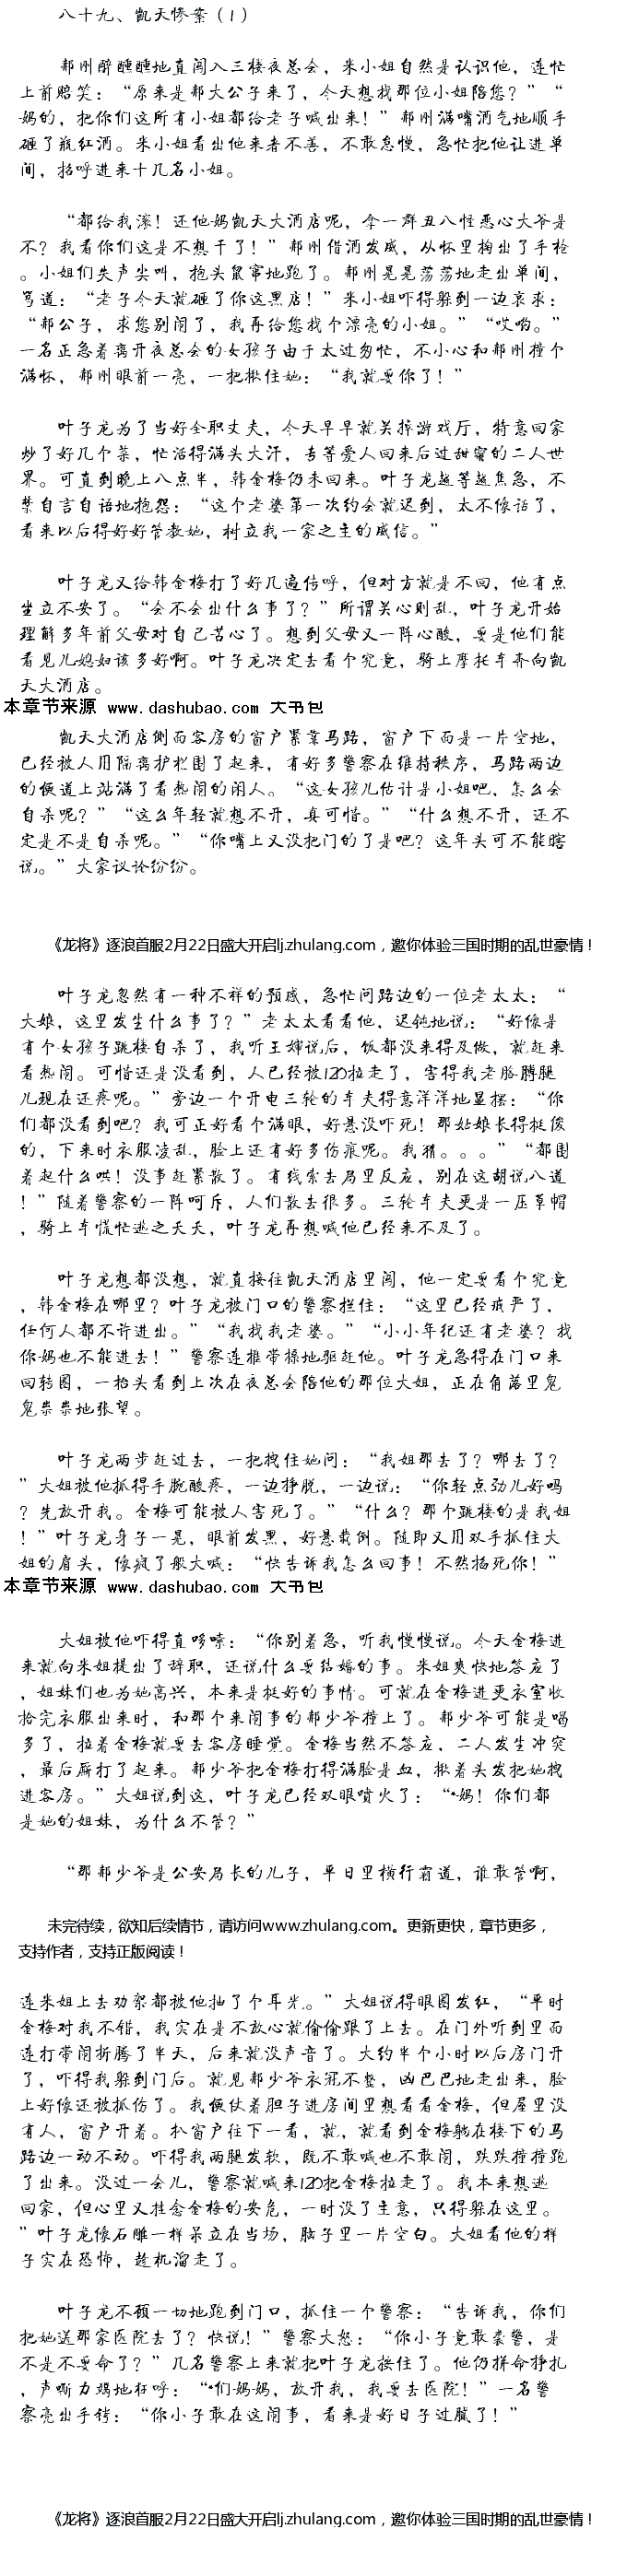 八十九、凯天惨案（1）
郝刚醉醺醺地直闯入三楼夜总会，朱小姐自然是认识他，连忙
上前赔笑：“原来是郝大公子来了，今天想找那位小姐陪您？”“
妈的，把你们这所有小姐都给老子喊出来！”郝刚满嘴酒气地顺手
砸了瓶红酒。朱小姐看出他来者不善，不敢怠慢，急忙把他让进单
间，招呼进来十几名小姐。
“都给我滚！还他妈凯天大酒店呢，拿一群丑八怪恶心大爷是
不？我看你们这是不想干了！”郝刚借酒发威，从怀里掏出了手枪
。小姐们失声尖叫，抱头鼠窜地跑了。郝刚晃晃荡荡地走出单间，
骂道：“老子今天就砸了你这黑店！”朱小姐吓得躲到一边哀求：
“郝公子，求您别闹了，我再给您找个漂亮的小姐。”“哎哟。”
一名正急着离开夜总会的女孩子由于太过匆忙，不小心和郝刚撞个
满怀，郝刚眼前一亮，一把揪住她：“我就要你了！”
叶子龙为了当好全职丈夫，今天早早就关掉游戏厅，特意回家
炒了好几个菜，忙活得满头大汗，专等爱人回来后过甜蜜的二人世
界。可直到晚上八点半，韩金梅仍未回来。叶子龙越等越焦急，不
禁自言自语地抱怨：“这个老婆第一次约会就迟到，太不像话了，
看来以后得好好管教她，树立我一家之主的威信。”
叶子龙又给韩金梅打了好几遍传呼，但对方就是不回，他有点
坐立不安了。“会不会出什么事了？”所谓关心则乱，叶子龙开始
理解多年前父母对自己苦心了。想到父母又一阵心酸，要是他们能
看见儿媳妇该多好啊。叶子龙决定去看个究竟，骑上摩托车奔向凯
天大酒店。
本章节来源 www.dashubao.com 大书包
凯天大酒店侧面客房的窗户紧靠马路，窗户下面是一片空地，
已经被人用隔离护栏围了起来，有好多警察在维持秩序，马路两边
的便道上站满了看热闹的闲人。“这女孩儿估计是小姐吧，怎么会
自杀呢？”“这么年轻就想不开，真可惜。”“什么想不开，还不
定是不是自杀呢。”“你嘴上又没把门的了是吧？这年头可不能瞎
说。”大家议论纷纷。
《龙将》逐浪首服2月22日盛大开启lj.zhulang.com，邀你体验三国时期的乱世豪情！
叶子龙忽然有一种不祥的预感，急忙问路边的一位老太太：“
大娘，这里发生什么事了？”老太太看看他，迟钝地说：“好像是
有个女孩子跳楼自杀了，我听王婶说后，饭都没来得及做，就赶来
看热闹。可惜还是没看到，人已经被120拉走了，害得我老胳膊腿
儿现在还疼呢。”旁边一个开电三轮的车夫得意洋洋地显摆：“你
们都没看到吧？我可正好看个满眼，好悬没吓死！那姑娘长得挺俊
的，下来时衣服凌乱，脸上还有好多伤痕呢。我猜。。。”“都围
着起什么哄！没事赶紧散了。有线索去局里反应，别在这胡说八道
！”随着警察的一阵呵斥，人们散去很多。三轮车夫更是一压草帽
，骑上车慌忙逃之夭夭，叶子龙再想喊他已经来不及了。
叶子龙想都没想，就直接往凯天酒店里闯，他一定要看个究竟
，韩金梅在哪里？叶子龙被门口的警察拦住：“这里已经戒严了，
任何人都不许进出。”“我找我老婆。”“小小年纪还有老婆？找
你妈也不能进去！”警察连推带搡地驱赶他。叶子龙急得在门口来
回转圈，一抬头看到上次在夜总会陪他的那位大姐，正在角落里鬼
鬼祟祟地张望。
叶子龙两步赶过去，一把拽住她问：“我姐那去了？哪去了？
”大姐被他抓得手腕酸疼，一边挣脱，一边说：“你轻点劲儿好吗
？先放开我。金梅可能被人害死了。”“什么？那个跳楼的是我姐
！”叶子龙身子一晃，眼前发黑，好悬栽倒。随即又用双手抓住大
姐的肩头，像疯了般大喊：“快告诉我怎么回事！不然掐死你！”
本章节来源 www.dashubao.com 大书包
大姐被他吓得直哆嗦：“你别着急，听我慢慢说。今天金梅进
来就向朱姐提出了辞职，还说什么要结婚的事。朱姐爽快地答应了
，姐妹们也为她高兴，本来是挺好的事情。可就在金梅进更衣室收
拾完衣服出来时，和那个来闹事的郝少爷撞上了。郝少爷可能是喝
多了，拉着金梅就要去客房睡觉。金梅当然不答应，二人发生冲突
，最后厮打了起来。郝少爷把金梅打得满脸是血，揪着头发把她拽
进客房。”大姐说到这，叶子龙已经双眼喷火了：“*妈！你们都
是她的姐妹，为什么不管？”
“那郝少爷是公安局长的儿子，平日里横行霸道，谁敢管啊，
未完待续，欲知后续情节，请访问www.zhulang.com。更新更快，章节更多，
支持作者，支持正版阅读！
连朱姐上去劝架都被他抽了个耳光。”大姐说得眼圈发红，“平时
金梅对我不错，我实在是不放心就偷偷跟了上去。在门外听到里面
连打带闹折腾了半天，后来就没声音了。大约半个小时以后房门开
了，吓得我躲到门后。就见郝少爷衣冠不整，凶巴巴地走出来，脸
上好像还被抓伤了。我便仗着胆子进房间里想看看金梅，但屋里没
有人，窗户开着。扒窗户往下一看，就，就看到金梅躺在楼下的马
路边一动不动。吓得我两腿发软，既不敢喊也不敢闹，跌跌撞撞跑
了出来。没过一会儿，警察就喊来120把金梅拉走了。我本来想逃
回家，但心里又挂念金梅的安危，一时没了主意，只得躲在这里。
”叶子龙像石雕一样呆立在当场，脑子里一片空白。大姐看他的样
子实在恐怖，趁机溜走了。
叶子龙不顾一切地跑到门口，抓住一个警察：“告诉我，你们
把她送那家医院去了？快说！”警察大怒：“你小子竟敢袭警，是
不是不要命了？”几名警察上来就把叶子龙按住了。他仍拼命挣扎
，声嘶力竭地狂呼：“*们妈妈，放开我，我要去医院！”一名警
察亮出手铐：“你小子敢在这闹事，看来是好日子过腻了！”
《龙将》逐浪首服2月22日盛大开启lj.zhulang.com，邀你体验三国时期的乱世豪情！